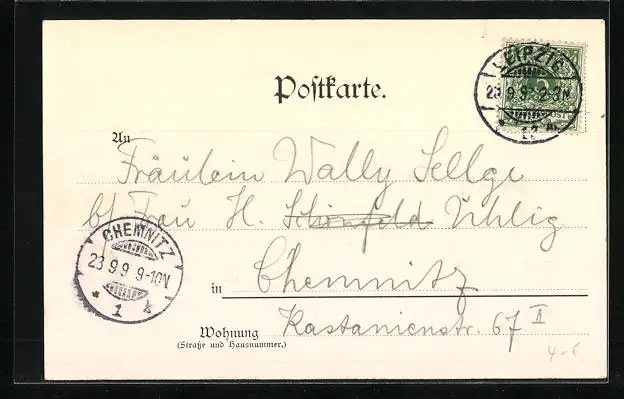 Postkarte.
LEIPZIG
23 9 9 2-3N
* 12 *
POST
An
Fräulein Wally Sellge
bf Frau H. Schönfeld Uhlig
CHEMNITZ
23 9 9 9-10N
* 1
in Chemnitz
Wohnung Kastanienstr. 67 II
(Straße und Hausnummer.)
4-6